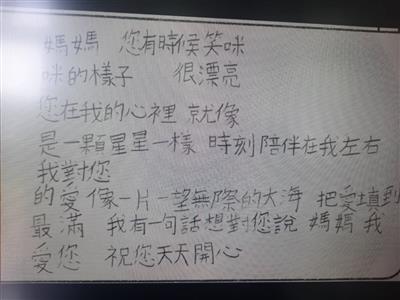 媽媽 您有時候笑咪
咪的樣子 很漂亮
您在我的心裡 就像
是一顆星星一樣 時刻陪伴在我左右
我對您
的愛像一片一望無際的大海 把愛填到
最滿 我有一句話想對您說 媽媽 我
愛您 祝您天天開心